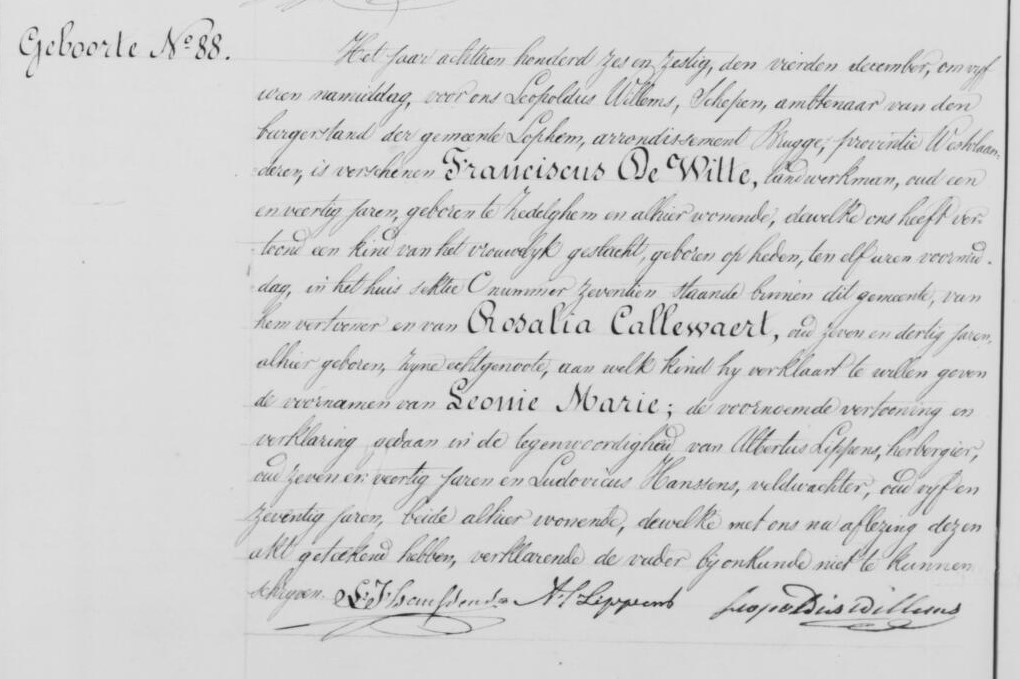 Geboorte No 88.
Het jaar achttien honderd zes en zestig, den vierden december, om vyf
uren namiddag, voor ons Leopoldus Willems, Schepen, ambtenaar van den
burgerstand der gemeente Lophem, arrondissement Brugge, provintie Westvlaan-
deren, is verschenen Franciscus De Witte, landwerkman, oud een
en veertig jaren, geboren te Zedelghem en alhier wonende, dewelke ons heeft ver-
toond een kind van het vrouwelyk geslacht, geboren op heden, ten elf uren voormid-
dag, in het huis sektie C nummer zeventien staande binnen dit gemeente, van
hem vertooner en van Rosalia Callewaert, oud zeven en dertig jaren,
alhier geboren, zyne echtgenoote, aan welk kind hy verklaart te willen geven
de voornamen van Leonie Marie; de voornoemde vertooning en
verklaring gedaan in de tegenwoordigheid van Albertus Lippens, herbergier,
oud zeven en veertig jaren en Ludovicus Hanssens, veldwachter, oud vyf en
zeventig jaren, beide alhier wonende, dewelke met ons na aflezing dezen
akt geteekend hebben, verklarende de vader by onkunde niet te kunnen
schryven. A. Lippens Leopoldus Willems